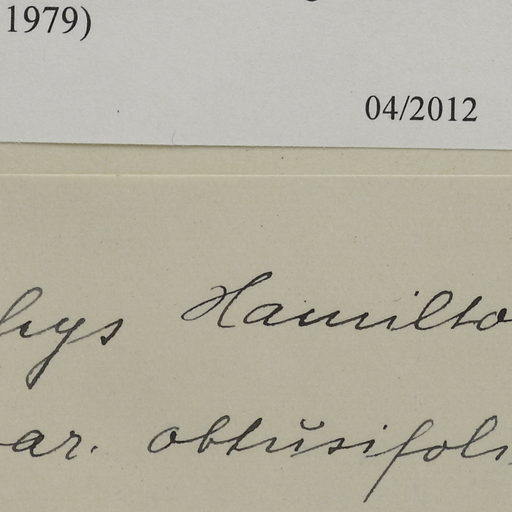 1979)
04/2012
hys Hamilto
ar. obtusifoli